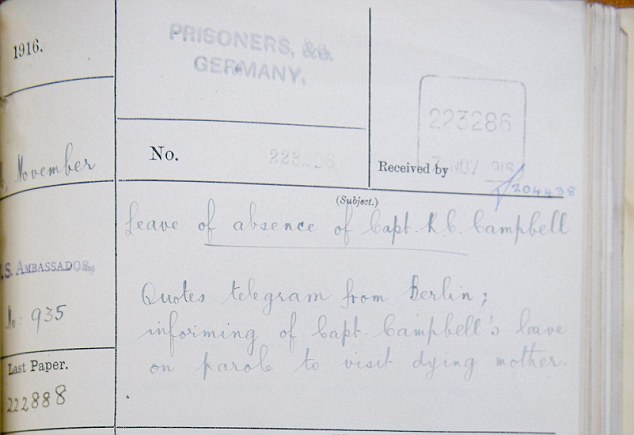 1916.
PRISONERS, &c.
GERMANY.
223286
November
No.
Received by
NOV 1916
204438
(Subject.)
Leave of absence of Capt. R. C. Campbell
S. AMBASSADOR,
Quotes telegram from Berlin;
No: 935
informing of Capt. Campbell's leave
on parole to visit dying mother.
Last Paper.
222888